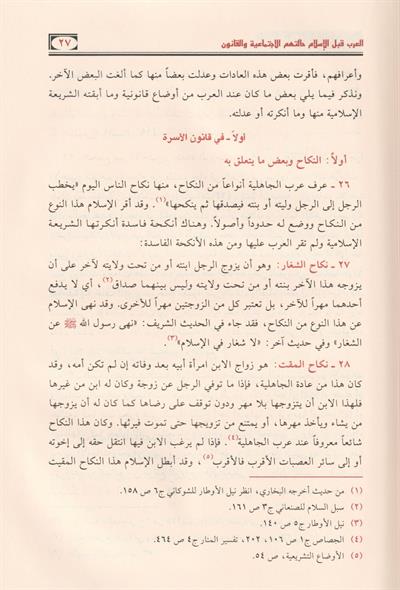 العرب قبل الإسلام حالتهم الاجتماعية والقانون
٢٧
وأعرافهم، فأقرت بعض هذه العادات وعدلت بعضاً منها كما ألغت البعض الآخر.
ونذكر فيما يلي بعض ما كان عند العرب من أوضاع قانونية وما أبقته الشريعة
الإسلامية منها وما أنكرته أو عدلته.
أولاً ـ في قانون الأسرة
أولاً: النكاح وبعض ما يتعلق به
٢٦ ـ عرف عرب الجاهلية أنواعاً من النكاح، منها نكاح الناس اليوم «يخطب
الرجل إلى الرجل وليته أو بنته فيصدقها ثم ينكحها»(١). وقد أقر الإسلام هذا النوع
من النكاح ووضع له حدوداً وأصولاً. وهناك أنكحة فاسدة أنكرتها الشريعة
الإسلامية ولم تقر العرب عليها ومن هذه الأنكحة الفاسدة:
٢٧ ـ نكاح الشغار: وهو أن يزوج الرجل ابنته أو من تحت ولايته لآخر على أن
يزوجه هذا الآخر بنته أو من تحت ولايته وليس بينهما صداق(٢)، أي لا يدفع
أحدهما مهراً للآخر، بل تعتبر كل من الزوجتين مهراً للأخرى. وقد نهى الإسلام
عن هذا النوع من النكاح، فقد جاء في الحديث الشريف: «نهى رسول الله ﷺ عن
الشغار» وفي حديث آخر: «لا شغار في الإسلام»(٣).
٢٨ ـ نكاح المقت: هو زواج الابن امرأة أبيه بعد وفاته إن لم تكن أمه، وقد
كان هذا من عادة الجاهلية، فإذا ما توفي الرجل عن زوجة وكان له ابن من غيرها
فلهذا الابن أن يتزوجها بلا مهر ودون توقف على رضاها كما كان له أن يزوجها
من يشاء ويأخذ مهرها، أو يمتنع من تزويجها حتى تموت فيرثها. وكان هذا النكاح
شائعاً معروفاً عند عرب الجاهلية(٤). فإذا لم يرغب الابن فيها انتقل حقه إلى إخوته
أو إلى سائر العصبات الأقرب فالأقرب(٥)، وقد أبطل الإسلام هذا النكاح المقيت
(١) من حديث أخرجه البخاري، انظر نيل الأوطار للشوكاني ج٦ ص ١٥٨.
(٢) سبل السلام للصنعاني ج٣ ص ١٦١.
(٣) نيل الأوطار ج٥ ص ١٤٠.
(٤) الجصاص ج١ ص ١٠٦، ٢٠٢، تفسير المنار ج٤ ص ٤٦٤.
(٥) الأوضاع التشريعية، ص ٥٤.